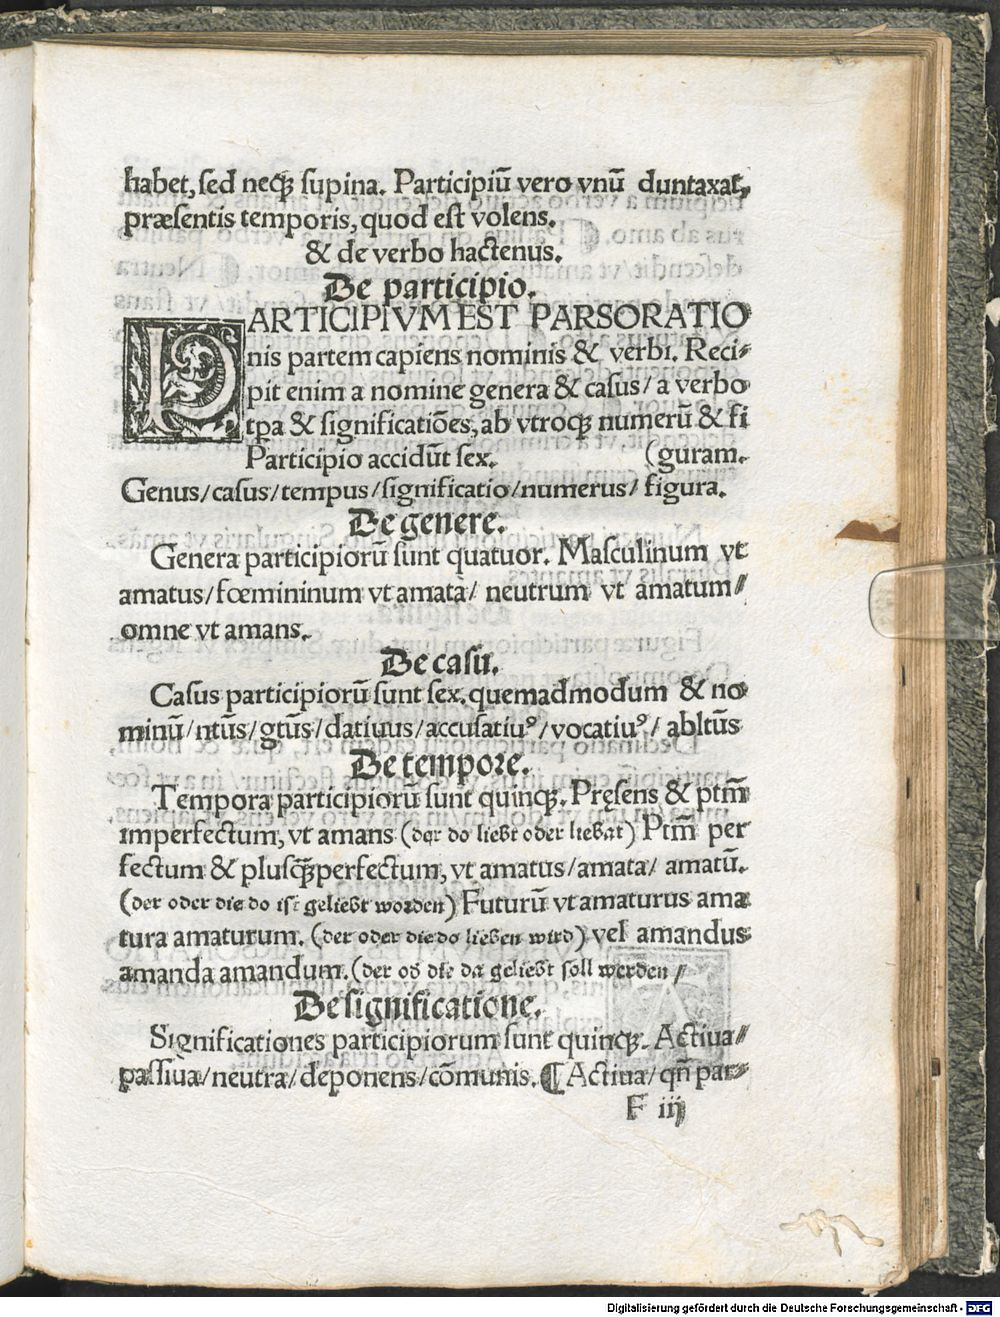 habet, sed neqꝫ supina. Participiū vero vnū duntaxat,
præsentis temporis, quod est volens.
& de verbo hactenus.
De participio.
PARTICIPIVM EST PARSORATIO
nis partem capiens nominis & verbi. Reci⸗
pit enim a nomine genera & casus/ a verbo
tpa & significatiōes, ab vtroqꝫ numerū & fi
Participio accidūt sex. (guram.
Genus/casus/tempus/significatio/numerus/ figura.
De genere.
Genera participiorū sunt quatuor. Masculinum vt
amatus/fœmininum vt amata/ neutrum vt amatum⸗
omne vt amans.
De casu.
Casus participiorū sunt sex, quemadmodum & no
minū/ntūs/gtūs/datiuus/accusatiuꝰ/vocatiuꝰ/ abltūs
De tempore.
Tempora participiorū sunt quinqꝫ. Pręsens & ptm̄
imperfectum, vt amans (der do liebt oder liebat) Ptm̄ per
fectum & plusqꝫperfectum, vt amatus/amata/ amatū.
(der oder die do ist geliebt worden) Futurū vt amaturus ama
tura amaturum. (der oder die do lieben wird) vel amandus
amanda amandum. (der od die da geliebt soll werden⸗
De significatione.
Significationes participiorum sunt quinqꝫ. Actiua⸗
passiua/neutra/deponens/cōmunis. ¶ Actiua/ qn̄ par⸗
F iij
Digitalisierung gefördert durch die Deutsche Forschungsgemeinschaft - DFG